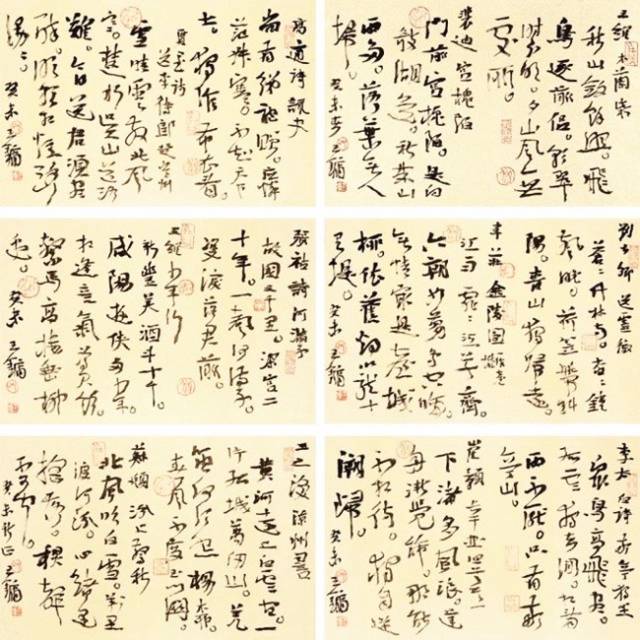 王維 木蘭柴
秋山斂餘照。飛
鳥逐前侶。彩翠
時分明。夕嵐無
處所。
裴迪 宮槐陌
門前宮槐陌。是向
欹湖道。秋來山
雨多。落葉無人
掃。癸未 王鏞
高適詩詠史
尚有綈袍贈。應憐
范叔寒。不知天下
士。猶作布衣看。
賈至詩
送李侍郎赴常州
雪晴雲散北風
寒。楚水吳山道路
難。今日送君須盡
醉。明朝相憶路
漫漫。癸未 王鏞
劉長卿 送靈澈
蒼蒼竹林寺。杳杳鐘
聲晚。荷笠帶斜
陽。青山獨歸遠。
韋莊 金陵圖
江雨霏霏江草齊。
六朝如夢鳥空啼。
無情最是臺城
柳。依舊煙籠十
里堤。王鏞
張祜詩河滿子
故國三千里。深宮二
十年。一聲何滿子。
雙淚落君前。
王維少年行
新豐美酒斗十千。
咸陽遊俠多少年。
相逢意氣為君飲。
繫馬高樓垂柳
邊。癸未 王鏞
李太白詩敬亭獨坐
眾鳥高飛盡。
孤雲獨去閑。相看
兩不厭。只有敬
亭山。
崔顥 長干曲
下渚多風浪。蓮
舟漸覺稀。那能
不相待。獨自逆
潮歸。癸未 王鏞
王之渙 涼州詞
黃河遠上白雲間。一
片孤城萬仞山。羌
笛何須怨楊柳。
春風不度玉門關。
蘇頲 汾上驚秋
北風吹白雲。萬里
渡河汾。心緒逢
搖落。秋聲
不可聞。癸未 王鏞